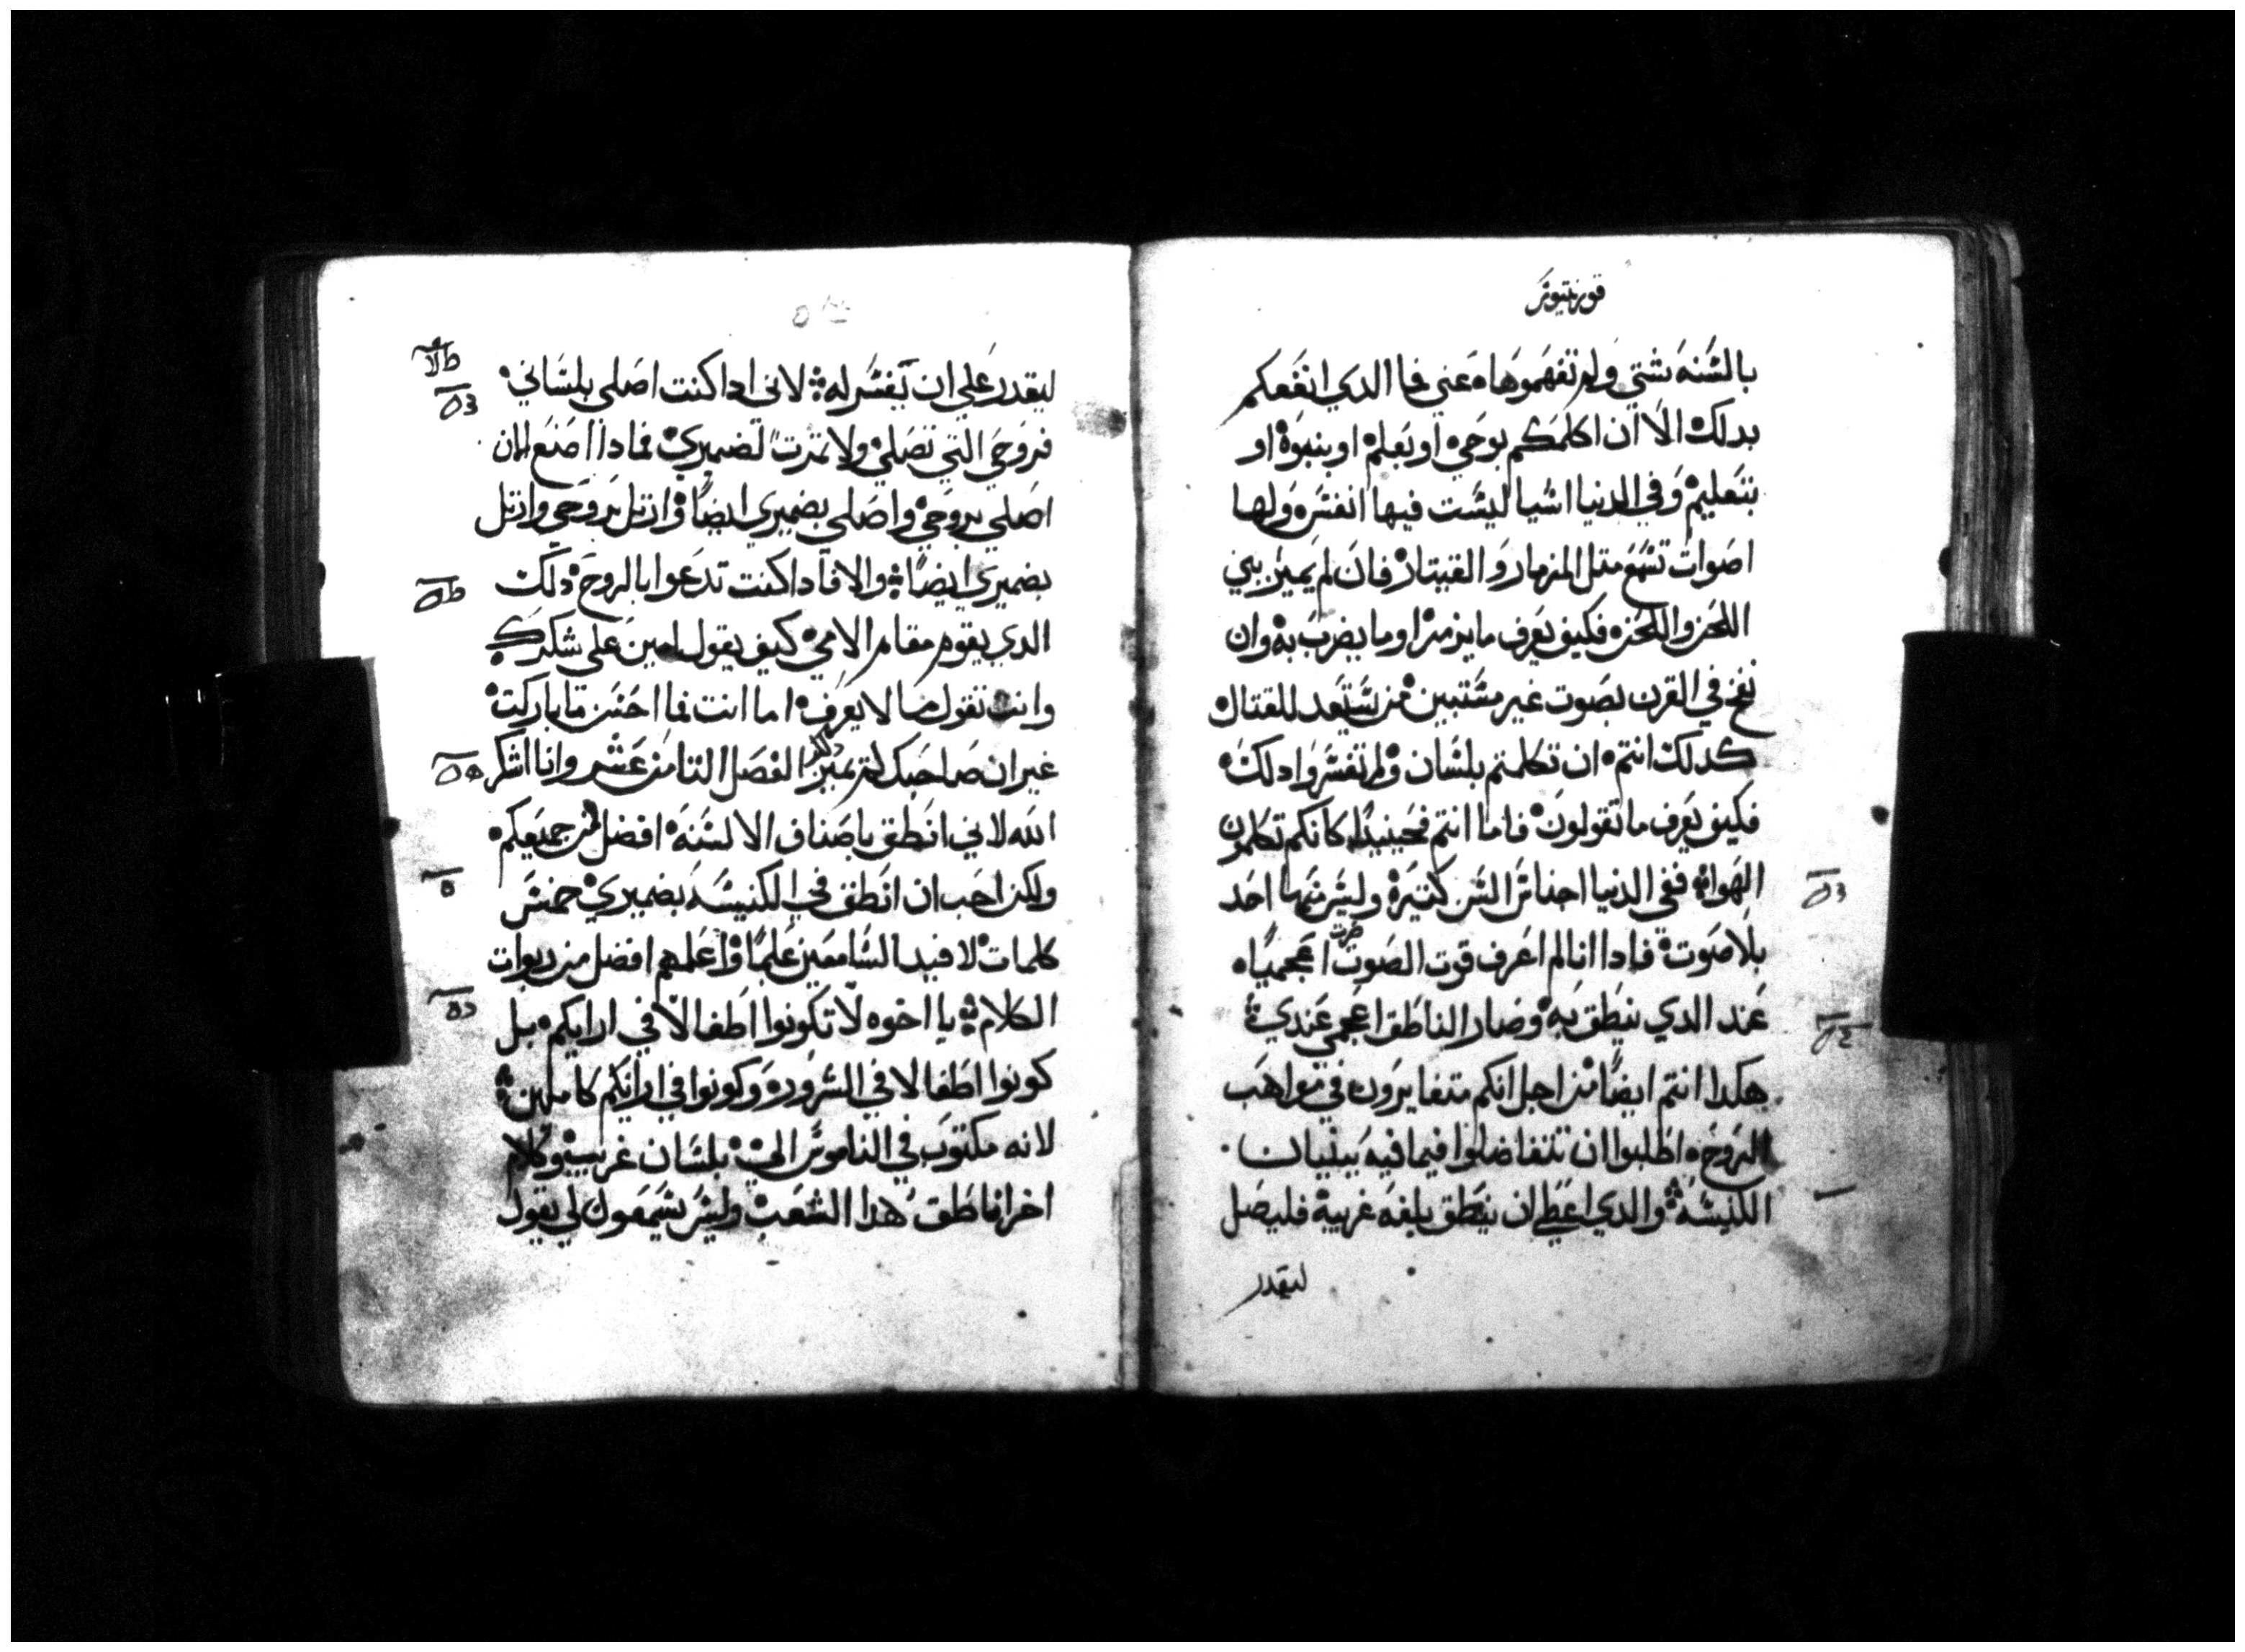 قورنتيوس
بالسنه شتي ولم تفهموها عني فما الدي انفعكم
بدلك الا ان اكلمكم بوحي او بعلم او بنبوة او
بتعليم وفي الدنيا اشيا ليست فيها انفس ولها
اصوات تسمع متل المزمار والقيتار فان لم يميز بين
اللحن واللحن فكيف يعرف ما يزمر او ما يضرب به وان
نفخ في القرن بصوت غير مستبين من يستعد للقتال
كدلك انتم ان تكلمتم بلسان ولم تفسروا دلك
فكيف يعرف ما تقولون فاما انتم فحينيدا كانكم تكلمون
الهوا ففي الدنيا اجناس السن كتيرة وليس منها احد
بلا صوت فادا انا لم اعرف قوت الصوت صرت اعجميا
عند الدي ينطق به وصار الناطق اعجمي عندي
هكدا انتم ايضا من اجل انكم متغايرون في مواهب
الروح اطلبوا ان تتفاضلوا فيما فيه بينيان
الكنيسه والدي اعطي ان ينطق بلغه غريبة فليصل
ليقدر
ليقدر علي ان يفسر له لاني ادا كنت اصلي بلساني
فروحي التي تصلي ولا تمرت لضميري فمادا اصنع الان
اصلي بروحي واصلي بضميري ايضا وارتل بروحي وارتل
بضميري ايضا والا فادا كنت تدعوا بالروح دلك
الدي يقوم مقام الامي كيف يقول امين علي شكرك
وانت تقول ما لا يعرف اما انت فما احسن ما باركت
غير ان صاحبك لم يميز الفصل التامن عشر وانا اشكر
الله لاني انطق باصناف الالسنه افضل من جميعكم
ولكن احب ان انطق في الكنيسه بضميري خمس
كلمات لافيد السامعين علما واعلمهم افضل من ربوات
الكلام يا اخوه لا تكونوا اطفالا في ارايكم بل
كونوا اطفالا في الشروره وكونوا في ارائكم كاملين
لانه مكتوب في الناموس اني بلسان غريب وكلام
اخر اناطق هدا الشعب وليس يسمعون لي يقول